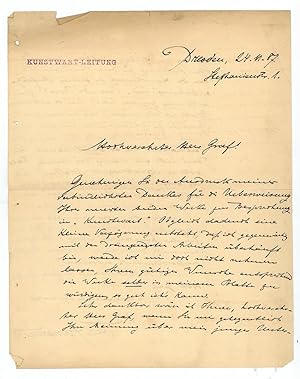 KUNSTWART-LEITUNG
Dresden, 24. 11. 87
Stephanienstr. 1.
Hochverehrter Herr Graf!
Genehmigen Sie den Ausdruck meines
Dankes für die Ueberweisung
Ihrer Werke zur Besprechung
im „Kunstwart". Obgleich dadurch eine
kleine Verzögerung entsteht, daß ich gegenwärtig
mit den Arbeiten überhäuft
bin, würde ich mir doch nicht nehmen
lassen, Ihrem gütigen Wunsche entsprechend
die Werke selber in meinem Blatte zu
würdigen, so gut ich's kann.
Sehr dankbar wäre ich Ihnen, hochverehr-
ter Herr Graf, wenn Sie mir gelegentlich
Ihre Meinung über mein junges